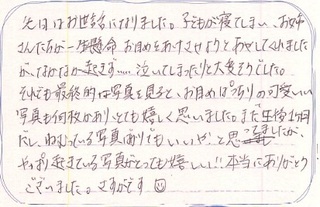 先日はお世話になりました。子どもが寝てしまい、お姉
さんたちが一生懸命お目めをあけさせようとあやしてくれました
が、なかなか起きず……泣いてしまったりと大変そうでした。
それでも最終的な写真を見ると、お目めぱっちりの可愛い
写真も何枚かありとても嬉しく思いました。まだ生後1ヵ月
だし、ねむっている写真ばかりでもいいやと思ってましたが、
やっぱり起きている写真がとっても嬉しい!!本当にありがとう
ございました。さすがです